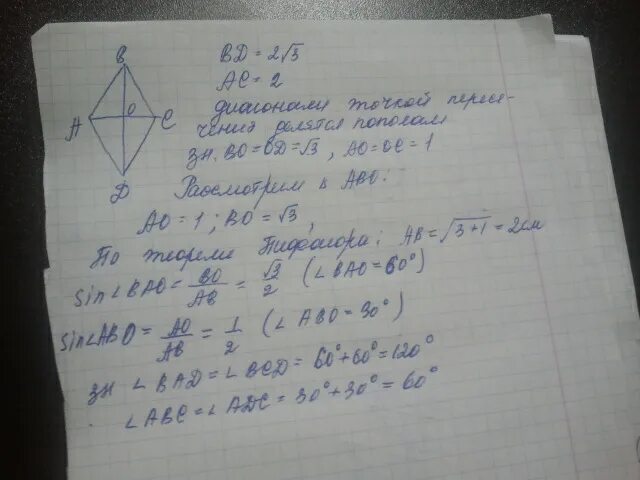 B
A
O
C
D
BD = 2√3
AC = 2
диагонали точкой пересе-
чения делятся пополам
зн. BO=OD=√3, AO=OC=1
Рассмотрим △ ABO:
AO=1; BO=√3,
По теореме Пифагора: AB=√3+1=2см
sin∠BAO = BO/AB = √3/2 (∠BAO=60°)
sin∠ABO = AO/AB = 1/2 (∠ABO=30°)
зн ∠BAD=∠BCD=60°+60°=120°
∠ABC=∠ADC=30°+30°=60°